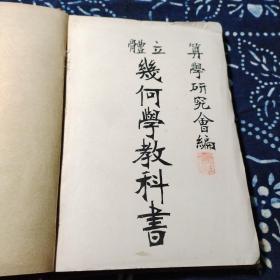 算學研究會編
立體
幾何學教科書